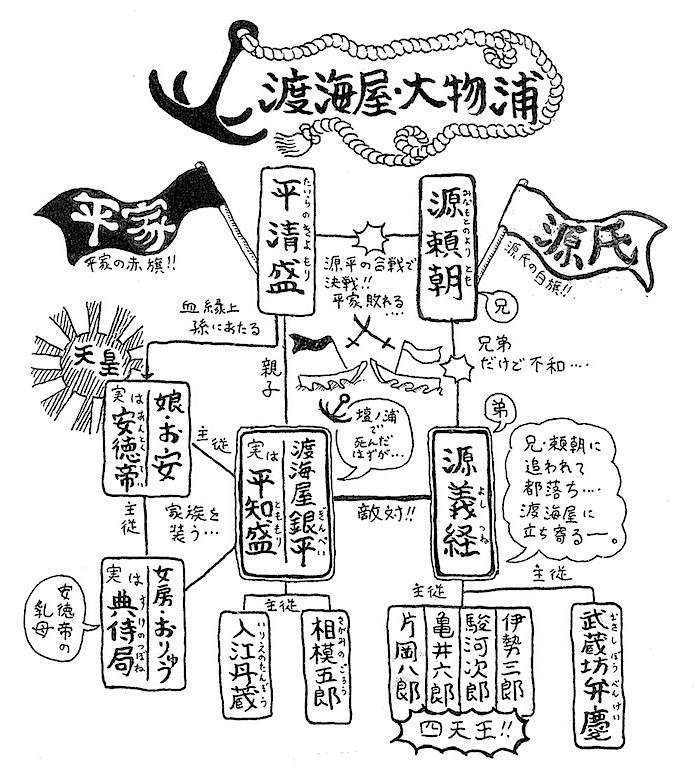 渡海屋・大物浦
平家
平家の赤旗!!
平清盛
たいらのきよもり
源平の合戦で
決戦!!
平家敗れる
‥‥
源頼朝
みなもとのよりとも
兄
源氏
源氏の白旗!!
血縁上
孫にあたる
親子
兄弟
だけど不和‥‥
天皇
娘・お安
実は安徳帝
あんとくてい
主従
家族を
装う‥‥
主従
女房・おりゅう
実は典侍局
すけのつぼね
安徳帝の
乳母
壇ノ浦
で
死んだ
はずが‥‥
渡海屋銀平
ぎんぺい
実は平知盛
とももり
敵対!!
弟
源義経
よしつね
兄・頼朝に
追われて
都落ち‥‥
渡海屋に
立ち寄るー。
主従
相模五郎
さがみのごろう
入江丹蔵
いりえのたんぞう
主従
伊勢三郎
駿河次郎
亀井六郎
片岡八郎
四天王!!
主従
武蔵坊弁慶
むさしぼうべんけい